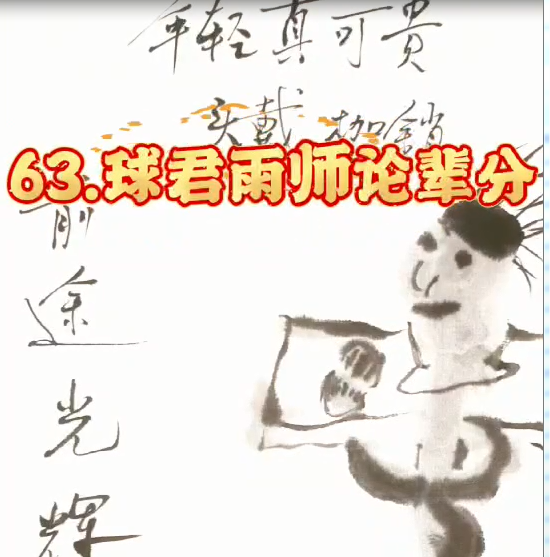 年轻真可贵
头戴枷销
63.球君雨师论辈分
前
途
光
辉